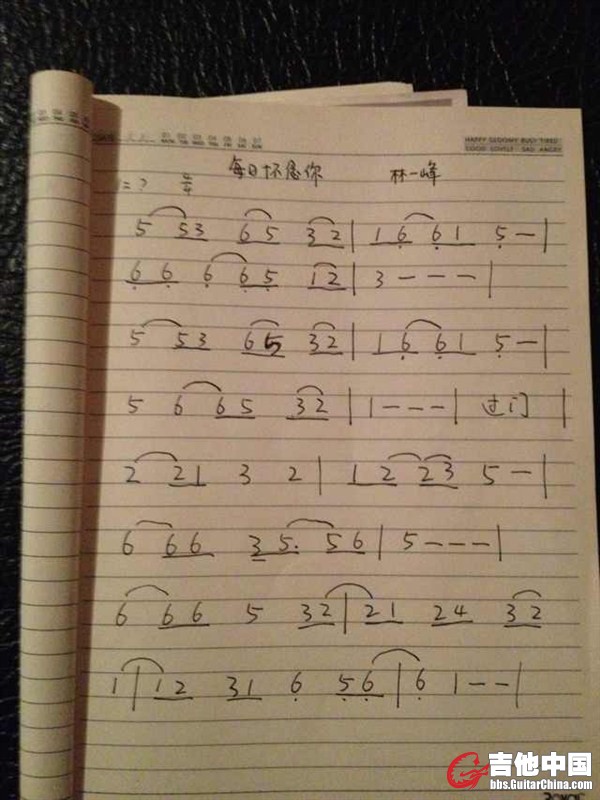 HAPPY GLOOMY BUSY TIRED
GOOD LOVELY SAD ANGRY
每日怀念你 林一峰
1=? 4/4
5 53 65 32 | 16 61 5 - |
66 6 65 12 | 3 - - - |
5 53 65 32 | 16 61 5 - |
5 6 65 32 | 1 - - - | 过门 |
2 21 3 2 | 12 23 5 - |
6 66 35. 56 | 5 - - - |
6 66 5 32 | 21 24 32
1 | 12 31 6 56 | 6 1 - - |
吉他中国
bbs.GuitarChina.com